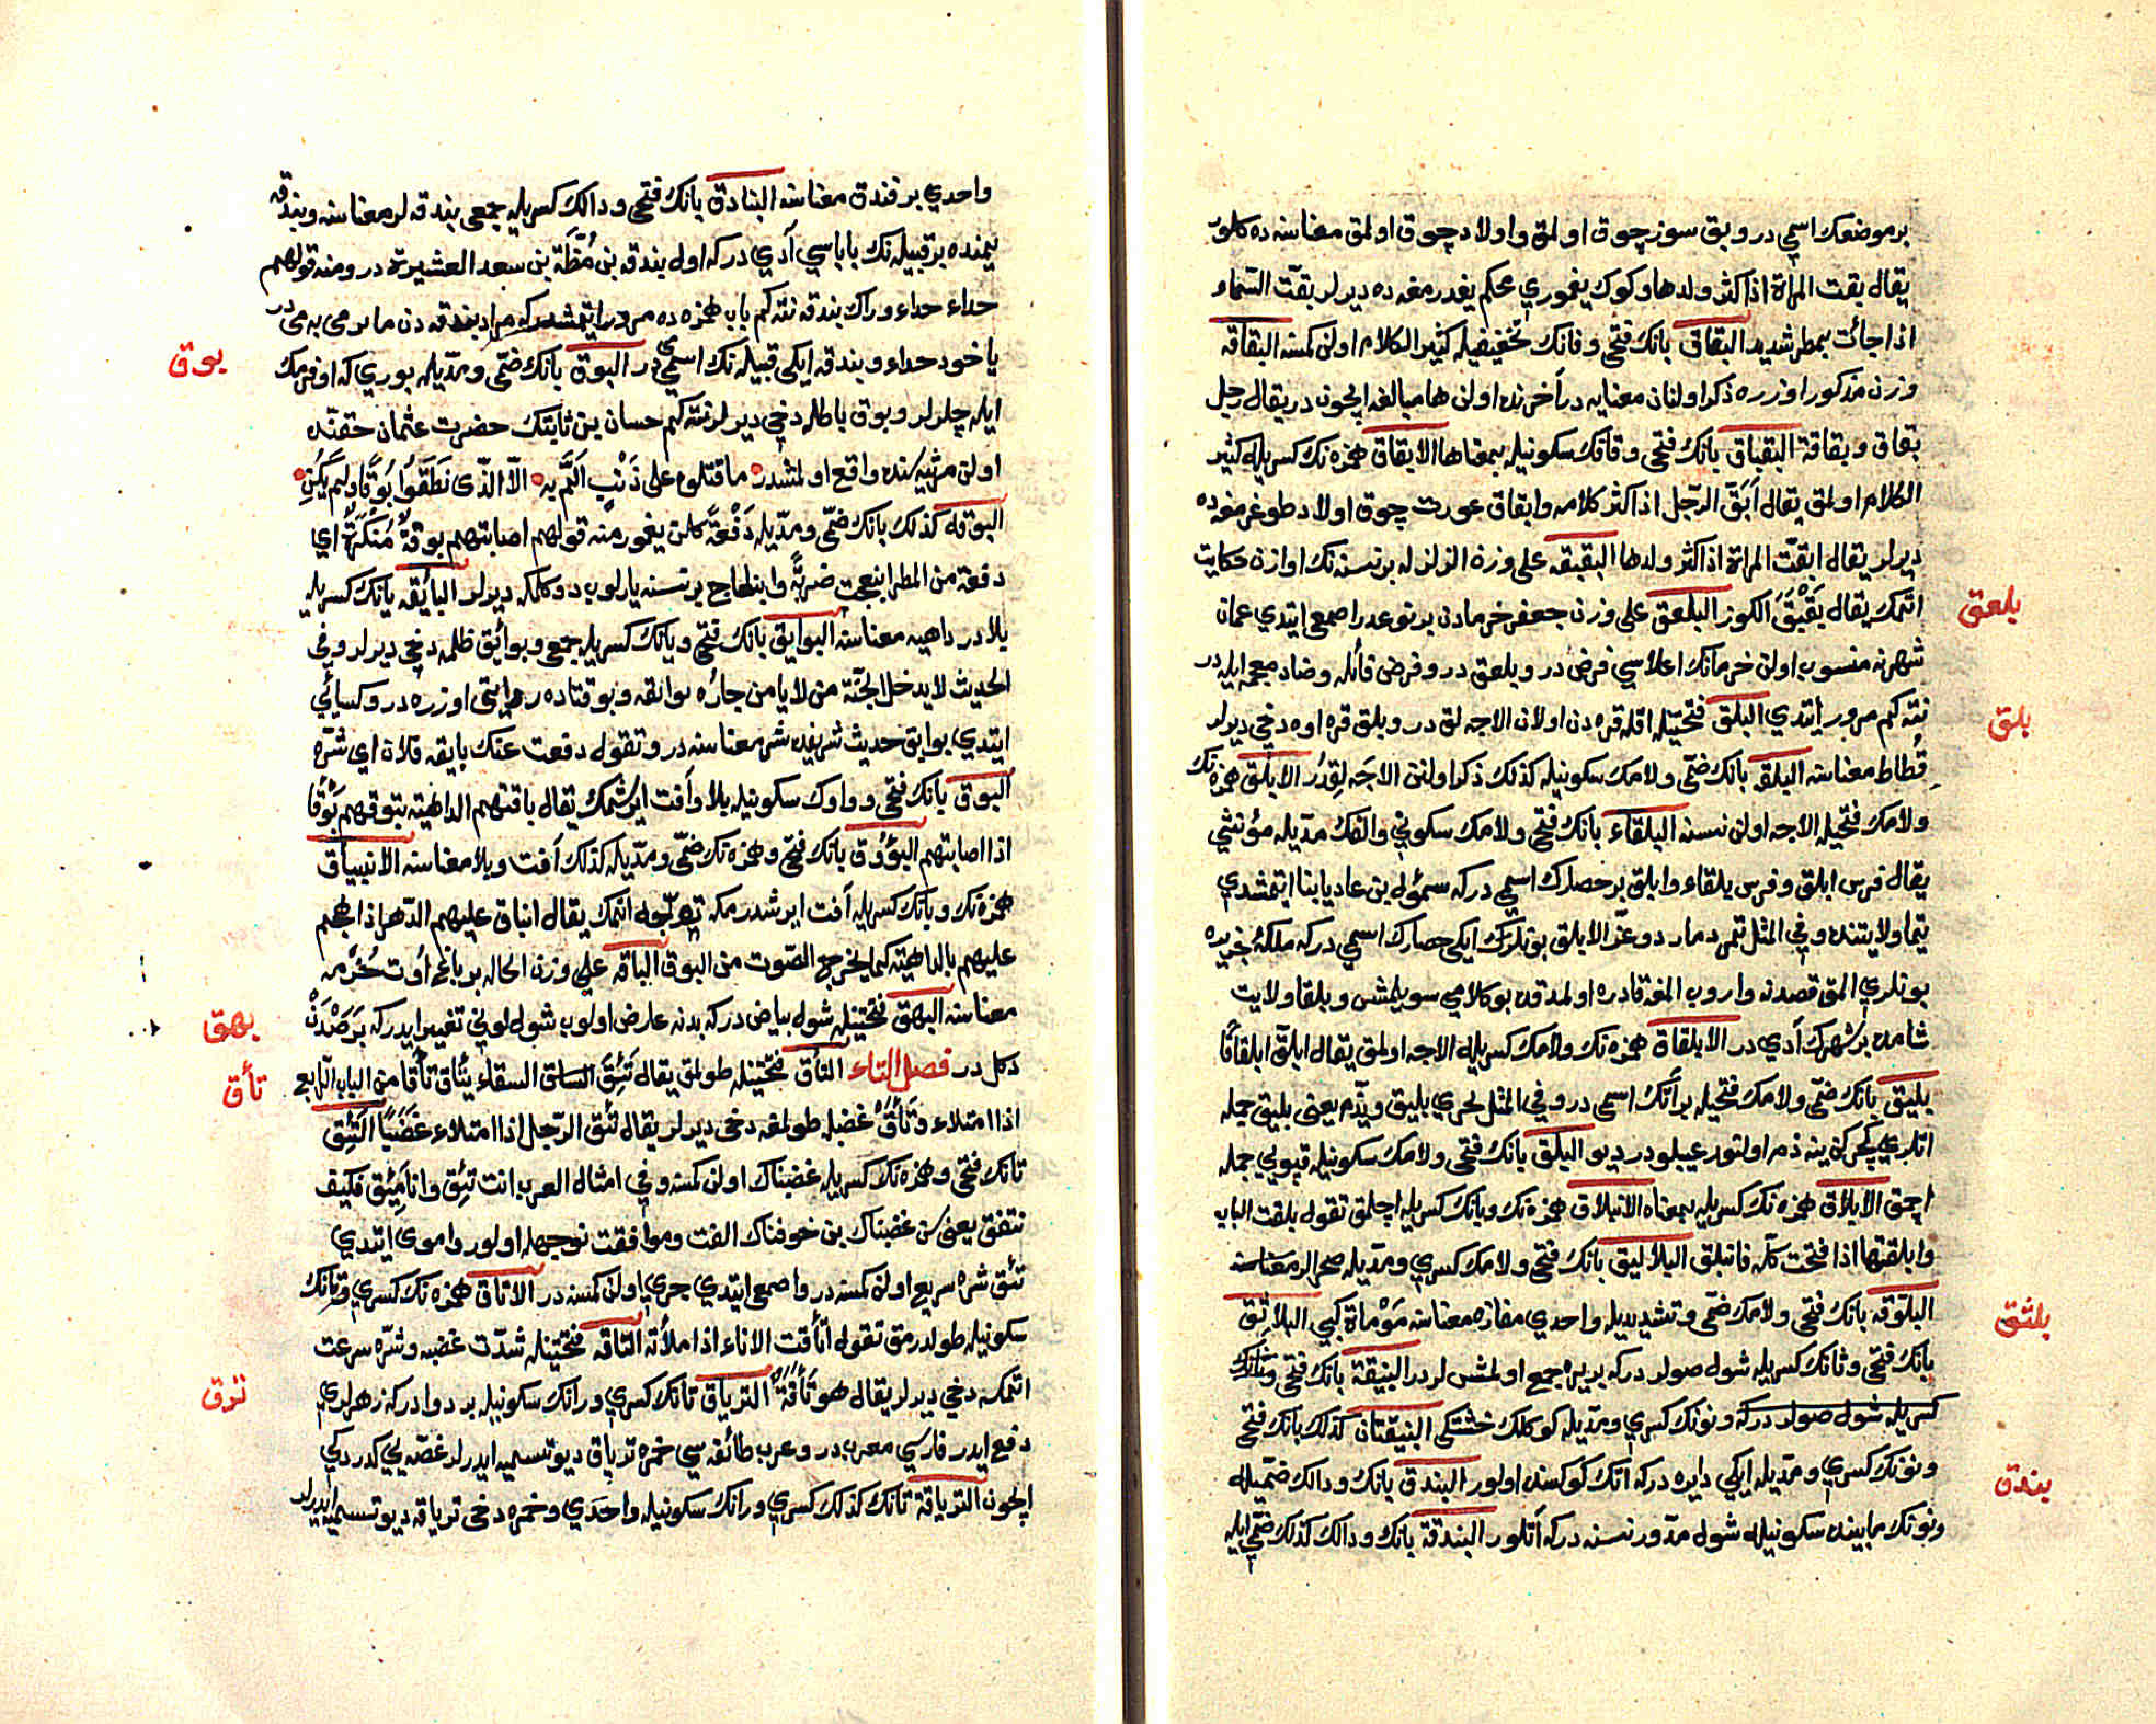 برموضعك اسمي در وبق سوز چوق اولمق واولاد چوق اولمق معناسنه ده كلور
يقال بقت المراة اذا كثر ولدها وكوك يغموري محكم يغدرمغه ده ديرلر بقت السماء
اذا جائت بمطر شديد البقاق بانك فتحى وقافك تخفيفيله كثير الكلام اولن كمسنه البقاقه
وزن مذكور اوزره ذكر اولنان معنايه در آخرنده اولن ها مبالغه ايچون در يقال رجل
بقاق وبقاقة البقباق بانك فتحى وقافك سكونيله بمعناها الابقاق همزه نك كسريله كثير
الكلام اولمق يقال ابق الرجل اذا كثر كلامه وابقاق عورت چوق اولاد طوغرمغه ده
ديرلر يقال ابقت المراة اذا كثر ولدها البقبقه على وزن الزلزله بر نسنه نك اوازن حكايت
اتمك يقال بقبق الكوز البلعق على وزن جعفر خرمادن بر نوعدر اصمعى ايتدي عمان
شهرنه منسوب اولن خرمانك اعلاسي فرض در وبلعق در وفرض فائله وضاد معجمه ايله در
نته كم مرور ايتدي البلق فتحتيله اقله قره دن اولان الاجه لق در وبلق قره اوه دخي ديرلر
فسطاط معناسنه البلقه بانك ضمى ولامك سكونيله كذلك ذكر اولنن الاجه لقدر الابلق همزه نك
ولامك فتحيله الاجه اولن نسنه البلقاء بانك فتحى ولامك سكوني والفك مديله مؤنثي
يقال فرس ابلق وفرس بلقاء وابلق بر حصارك اسمي در كه سمؤل بن عاديا بنا ايتمشدي
تيما ولايتنده وفي المثل تمرد مارد وعز الابلق بونلرك ايكي حصارك اسمي در كه ملكه جزيره
بونلري المق قصدنه واروب المغه قادره اولمدقده بو كلامي سويلمش وبلقا ولايت
شامده بر شهرك آدي در الابلقاق همزه نك ولامك كسريله الاجه اولمق يقال ابلق ابلقاقا
بليق بانك ضمى ولامك فتحيله بر آتك اسمي در وفي المثل يجري بليق ويذم يعنى بليق جمله
اتلري كچركن ينه ذم اولنور عيبلودر ديو البلق بانك فتحى ولامك سكونيله قپويى جمله
اچمق الابلاق همزه نك كسريله بمعناه الانبلاق همزه نك وبانك كسريله اچلمق تقول بلقت الباب
وابلقتها اذا فتحت كله فانبلق البلاليق بانك فتحى ولامك كسري ومديله صحرالر معناسنه
البلوقه بانك فتحى ولامك ضمى وتشديديله واحدي مفازه معناسنه موماة كبي البلاثق
بانك فتحى وثانك كسريله شول صولردركه بريره جمع اولمشلردر البنيقة بانك فتحى
كسريله شول صولردركه ونونك كسري ومديله كوكلك خشتكى البنيقتان كذلك بانك فتحى
ونونك كسري ومديله ايكي دايره دركه اتك كوكسنده اولور البندق بانك ودالك ضميله
ونونك مابينده سكونيله شول مدور نسنه دركه آتلور البندقة بانك ودالك كذلك ضمى ايله
بلعق
بلق
بلثق
بندق
واحدي بر فندق معناسنه البنادق بانك فتحى ودالك كسريله جمعى بندقه لر معناسنه وبندقه
يمنده بر قبيله نك باباسي آدي دركه اول بندقه بن مظة بن سعد العشيرة در ومنه قولهم
حداء حداء وراك بندقه نته كم باب همزه ده مرور ايتمشدركه مراد بندقه دن
ياخود حداء وبندقه ايكى قبيله نك اسمي در البوق بانك ضمى ومديله بوري كه اوفرمك
ايله چلرلر وبوق باطله دخي ديرلر نته كم حسان بن ثابتك حضرت عثمان حقنده
اولن مرثيه سنده واقع اولمشدر ما قتلوه على ذنب الم به الا الذى نطقوا بوقا ولم يكن
البوقه كذلك بانك ضمى ومديله دفعة كلن يغمور منه قولهم اصابتهم بوقة منكرة اي
دفعة من المطر انبعجت ضربة وانبعاج بر نسنه يارلوب دوكلمكه ديرلر البائقه يانك كسريله
بلادر داهيه معناسنه البوايق بانك فتحى ويانك كسريله جمعى وبوائق ظلمه دخي ديرلر وفي
الحديث لا يدخل الجنة من لا يامن جاره بوائقه وبو قتاده روايتى اوزره در وكسائي
ايتدي بوايق حديث شريفده شر معناسنه در وتقول دفعت عنك بايقه فلان اي شره
البوق بانك فتحى وواوك سكونيله بلا وآفت ايرشمك يقال باقتهم الداهية تبوقهم بوقا
اذا اصابتهم البؤوق بانك فتحى وهمزه نك ضمى ومديله كذلك آفت وبلا معناسنه الانبياق
همزه نك وبانك كسريله آفت ايرشدرمكه تعجيل اتمك يقال انباق عليهم الدهر اذا هجم
عليهم بالداهية كما يخرج الصوت من البوق الباقه على وزن الحاله بر باغ اوت حزمه
معناسنه البهق فتحتيله شول بياض دركه بدنه عارض اولوب شول لوني تغيير ايدركه برصدن
دكل در فصل التاء التأق فتحتيله طولمق يقال تئق السقاء يتأق تأقا من الباب الرابع
اذا امتلاء وتأق غضبله طولمغه دخى ديرلر يقال تئق الرجل اذا امتلاء غضبا التئق
تانك فتحى وهمزه نك كسريله غضبناك اولن كمسنه وفي امثال العرب انت تئق وانا مئق فكيف
نتفق يعنى سن غضبناك بن خوفناك الفت وموافقت نوجهله اولور واموى ايتدي
تئق شره سريع اولن كمسنه در واصمعى ايتدي جري اولن كمسنه در الاتاق همزه نك كسري وتانك
سكونيله طولدرمق تقول اتأقت الاناء اذا ملأته التاقه فتحتيله شدت غضبه وشره سرعت
اتمكه دخي ديرلر يقال هو تأقة الترياق تانك كسري ورانك سكونيله بر دوادركه زهرلري
دفع ايدر فارسي معرب در وعرب طائفه سي خمره ترياق ديو تسميه ايدرلر غصه يي كدردكي
ايچون الترياقة تانك كذلك كسري ورانك سكونيله واحدي وخمره دخى ترياقه ديو تسميه ايدرلر
بوق
بهق
تأق
ترق